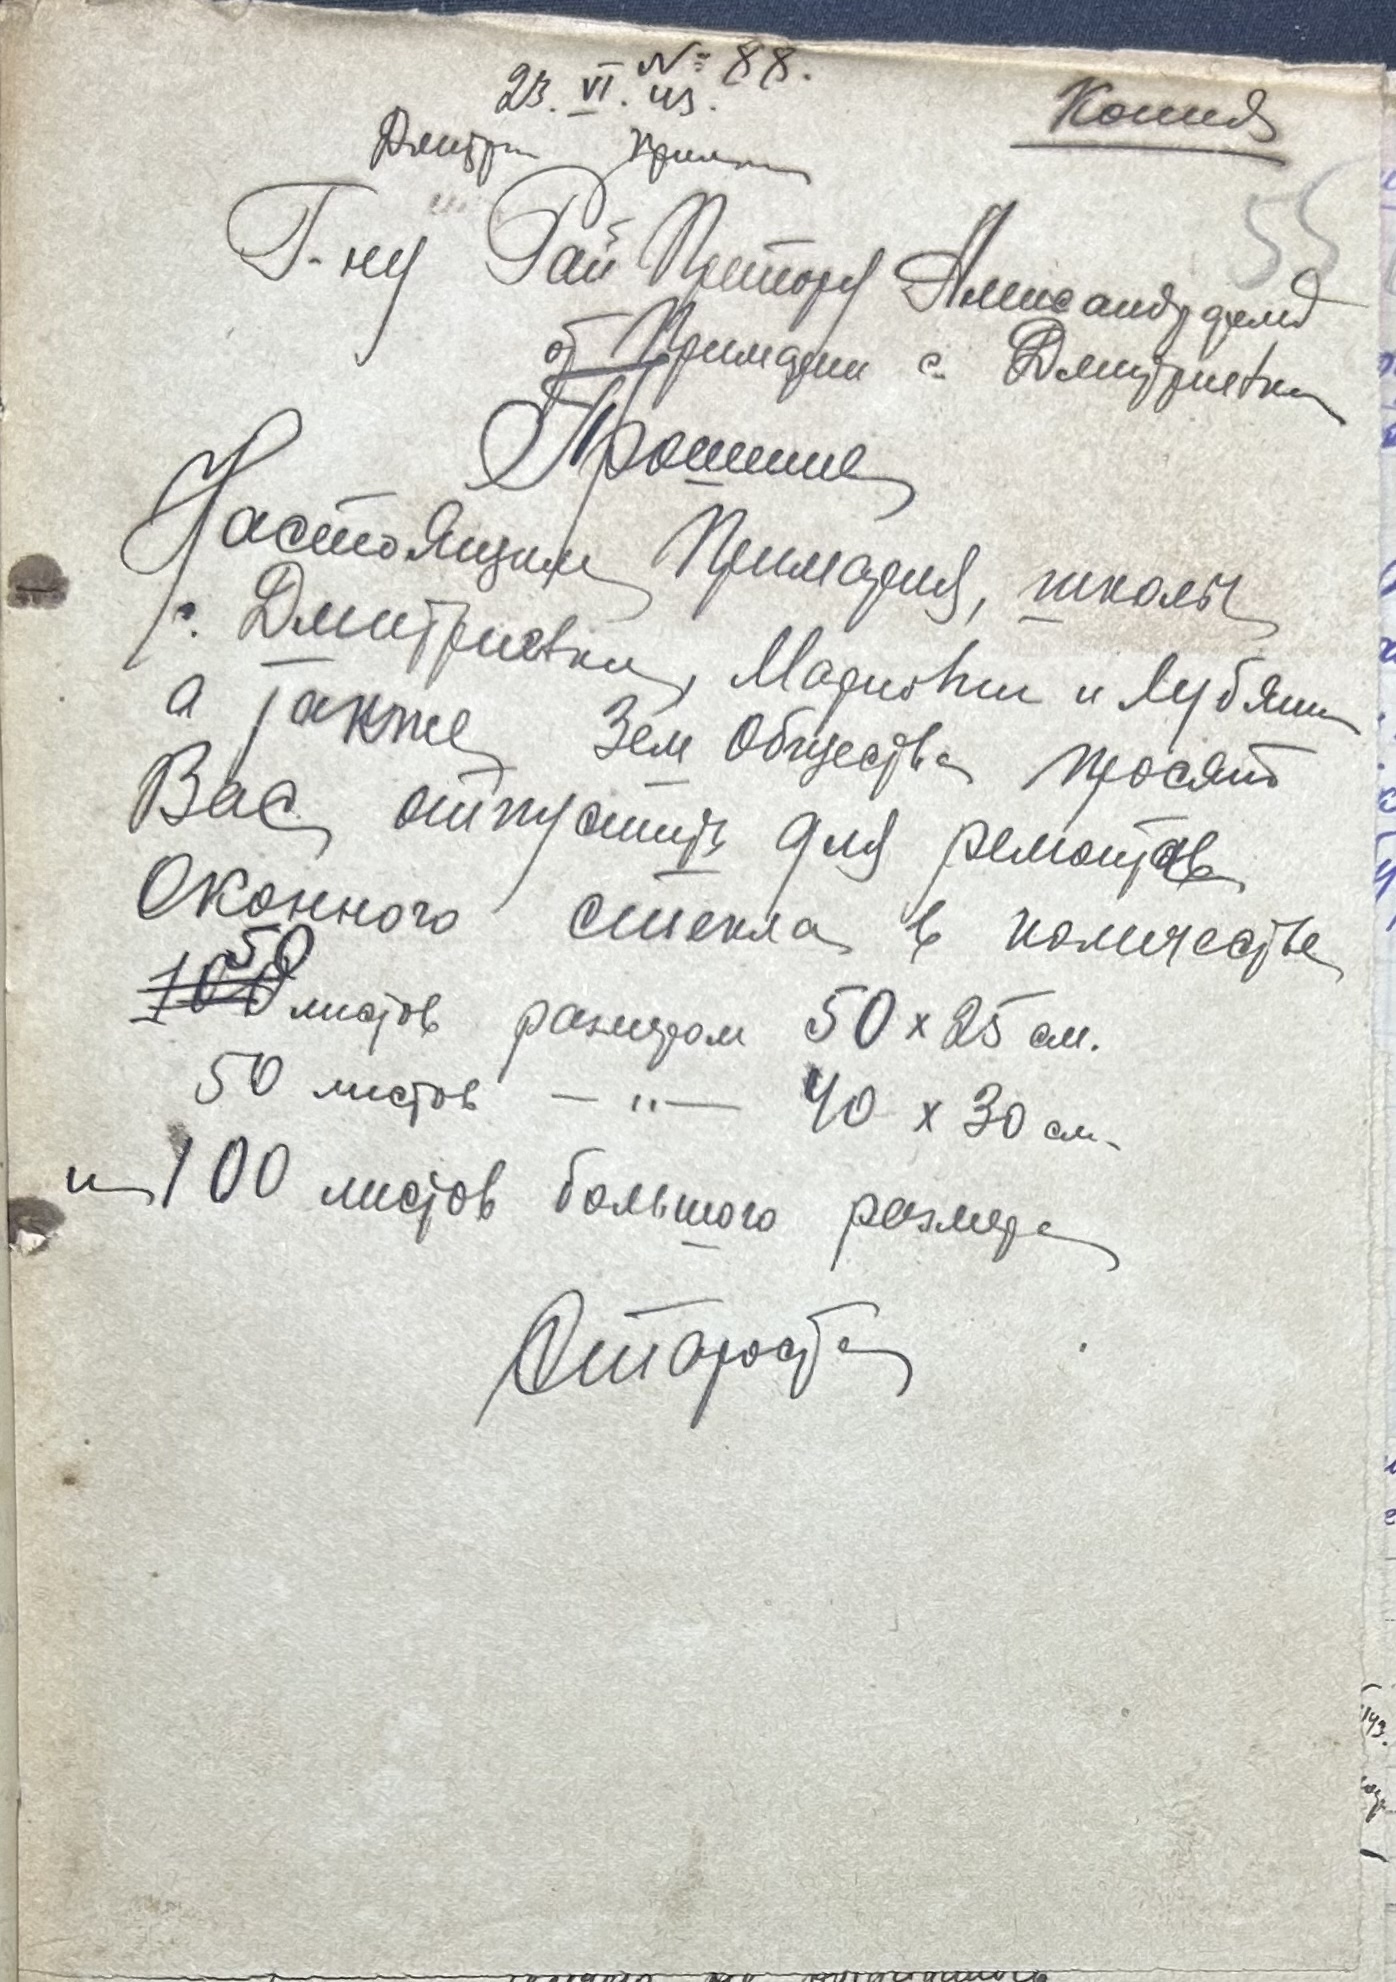 № 88.
23. VI. 43.
Копия
Дмитр. Прим.
55
Г-ну Рай Претору Александрфельд
от Примарии с. Дмитриевки
Прошение
Настоящим Примария, школы
с. Дмитриевки, Марновки и
а также Зем Общества просят
Вас отпустить для ремонтов
Оконного стекла в количестве
100 50 листов размером 50 x 25 см.
50 листов — " — 40 x 30 см.
и 100 листов большого размера
Староста